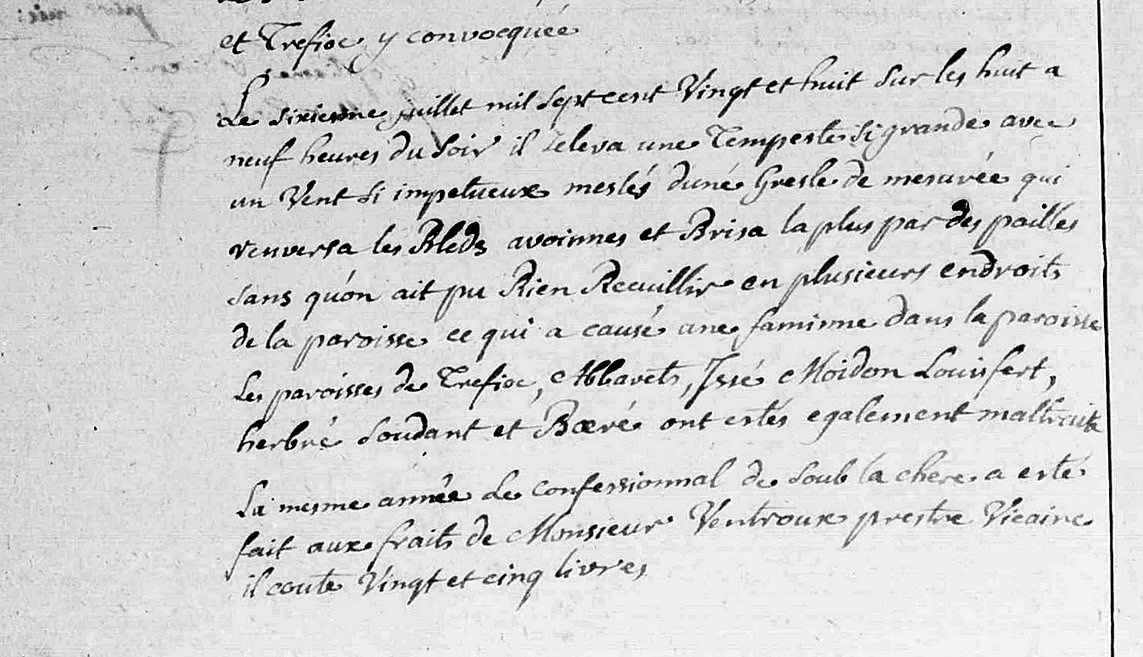 et Trefioc y convocquée
Le sixiesme juillet mil sept cent Vingt et huit sur les huit a
neuf heures du soir il seleva une Tempeste si grande avec
un Vent si impetueux meslés duné Gresle de mesurée qui
renversa les Bleds avoinnes et Brisa la plus par des pailles
sans qu'on ait pu Rien Recuillir en plusieurs endroits
de la paroisse ce qui a causé une faminne dans la paroisse
Les paroisses de Trefioc, Abbarets, Issé Moidon Louisfert,
herbré Soudant et Bœré ont estés egalement maltraité
La mesme année Le Confessionnal de soub la chere a esté
fait aux fraits de Monsieur Ventroux prestre Vicaire
il coute Vingt et cinq livres